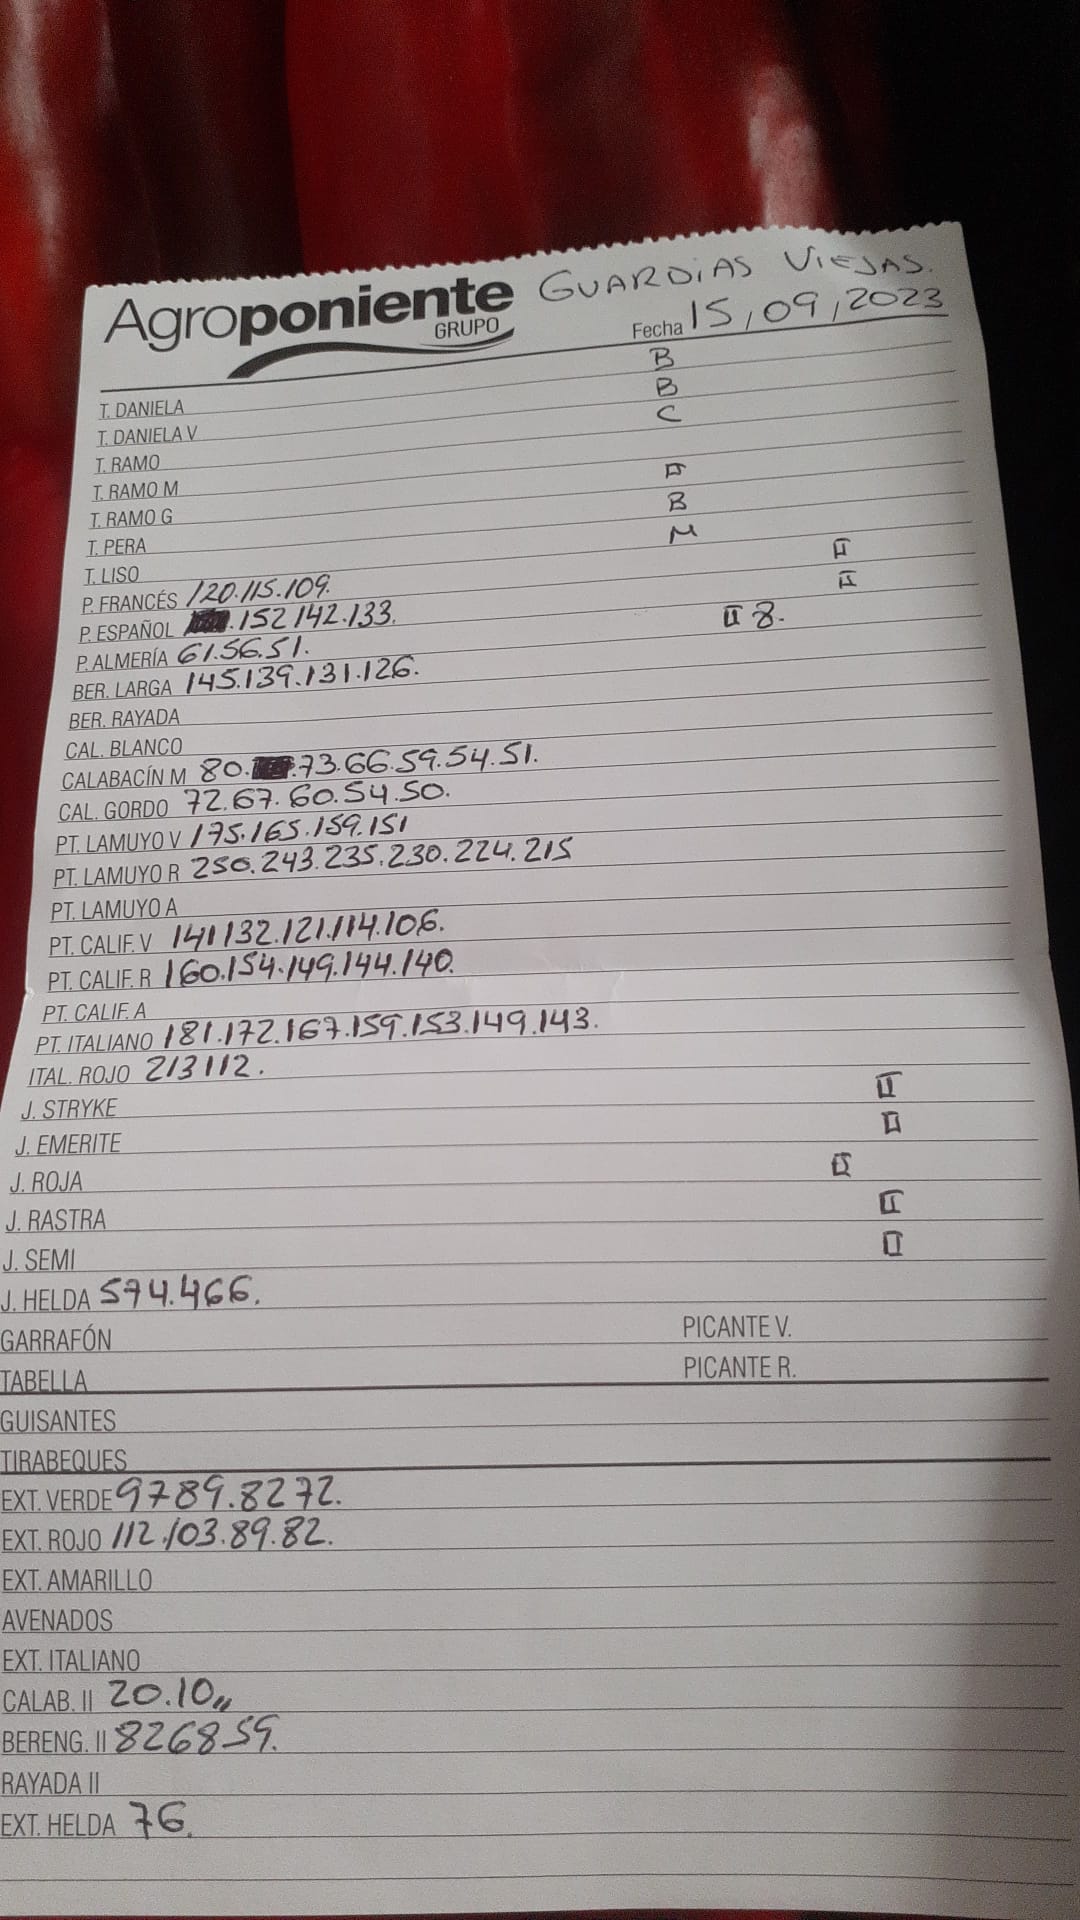 Agroponiente GUARDIAS VIEJAS.
GRUPO
Fecha 15,09,2023
B
T. DANIELA B
T. DANIELA V C
T. RAMO
T. RAMO M
T. RAMO G B
T. PERA M
T. LISO II
P. FRANCÉS 120.115.109. II
P. ESPAÑOL .152 142.133. II 8.
P. ALMERÍA 61.56.51.
BER. LARGA 145.139.131.126.
BER. RAYADA
CAL. BLANCO
CALABACÍN M 80. .73.66.59.54.51.
CAL. GORDO 72.67.60.54.50.
PT. LAMUYO V 175.165.159.151
PT. LAMUYO R 250.243.235.230.224.215
PT. LAMUYO A
PT. CALIF. V 141132.121.114.106.
PT. CALIF. R 160.154.149.144.140.
PT. CALIF. A
PT. ITALIANO 181.172.167.159.153.149.143.
ITAL. ROJO 213112.
J. STRYKE II
J. EMERITE II
J. ROJA II
J. RASTRA II
J. SEMI II
J. HELDA 574.466.
GARRAFÓN PICANTE V.
TABELLA PICANTE R.
GUISANTES
TIRABEQUES
EXT. VERDE 9789.8272.
EXT. ROJO 112.103.89.82.
EXT. AMARILLO
AVENADOS
EXT. ITALIANO
CALAB. II 20.10,,
BERENG. II 826859.
RAYADA II
EXT. HELDA 76.